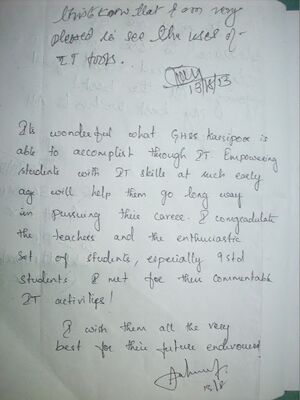 that I am very
pleased to see the uses of
IT tools.
13/8/13
Its wonderful what GHSS Karsipoor is
able to accomplish through IT. Empowering
students with IT skills at such early
age will help them go long way
in pursuing their career. I congradulate
the teachers and the enthuciastic
set of students, especially 9 std
students I met for their commentable
IT activities!
I wish them all the very
best for their future endevours!
13/8